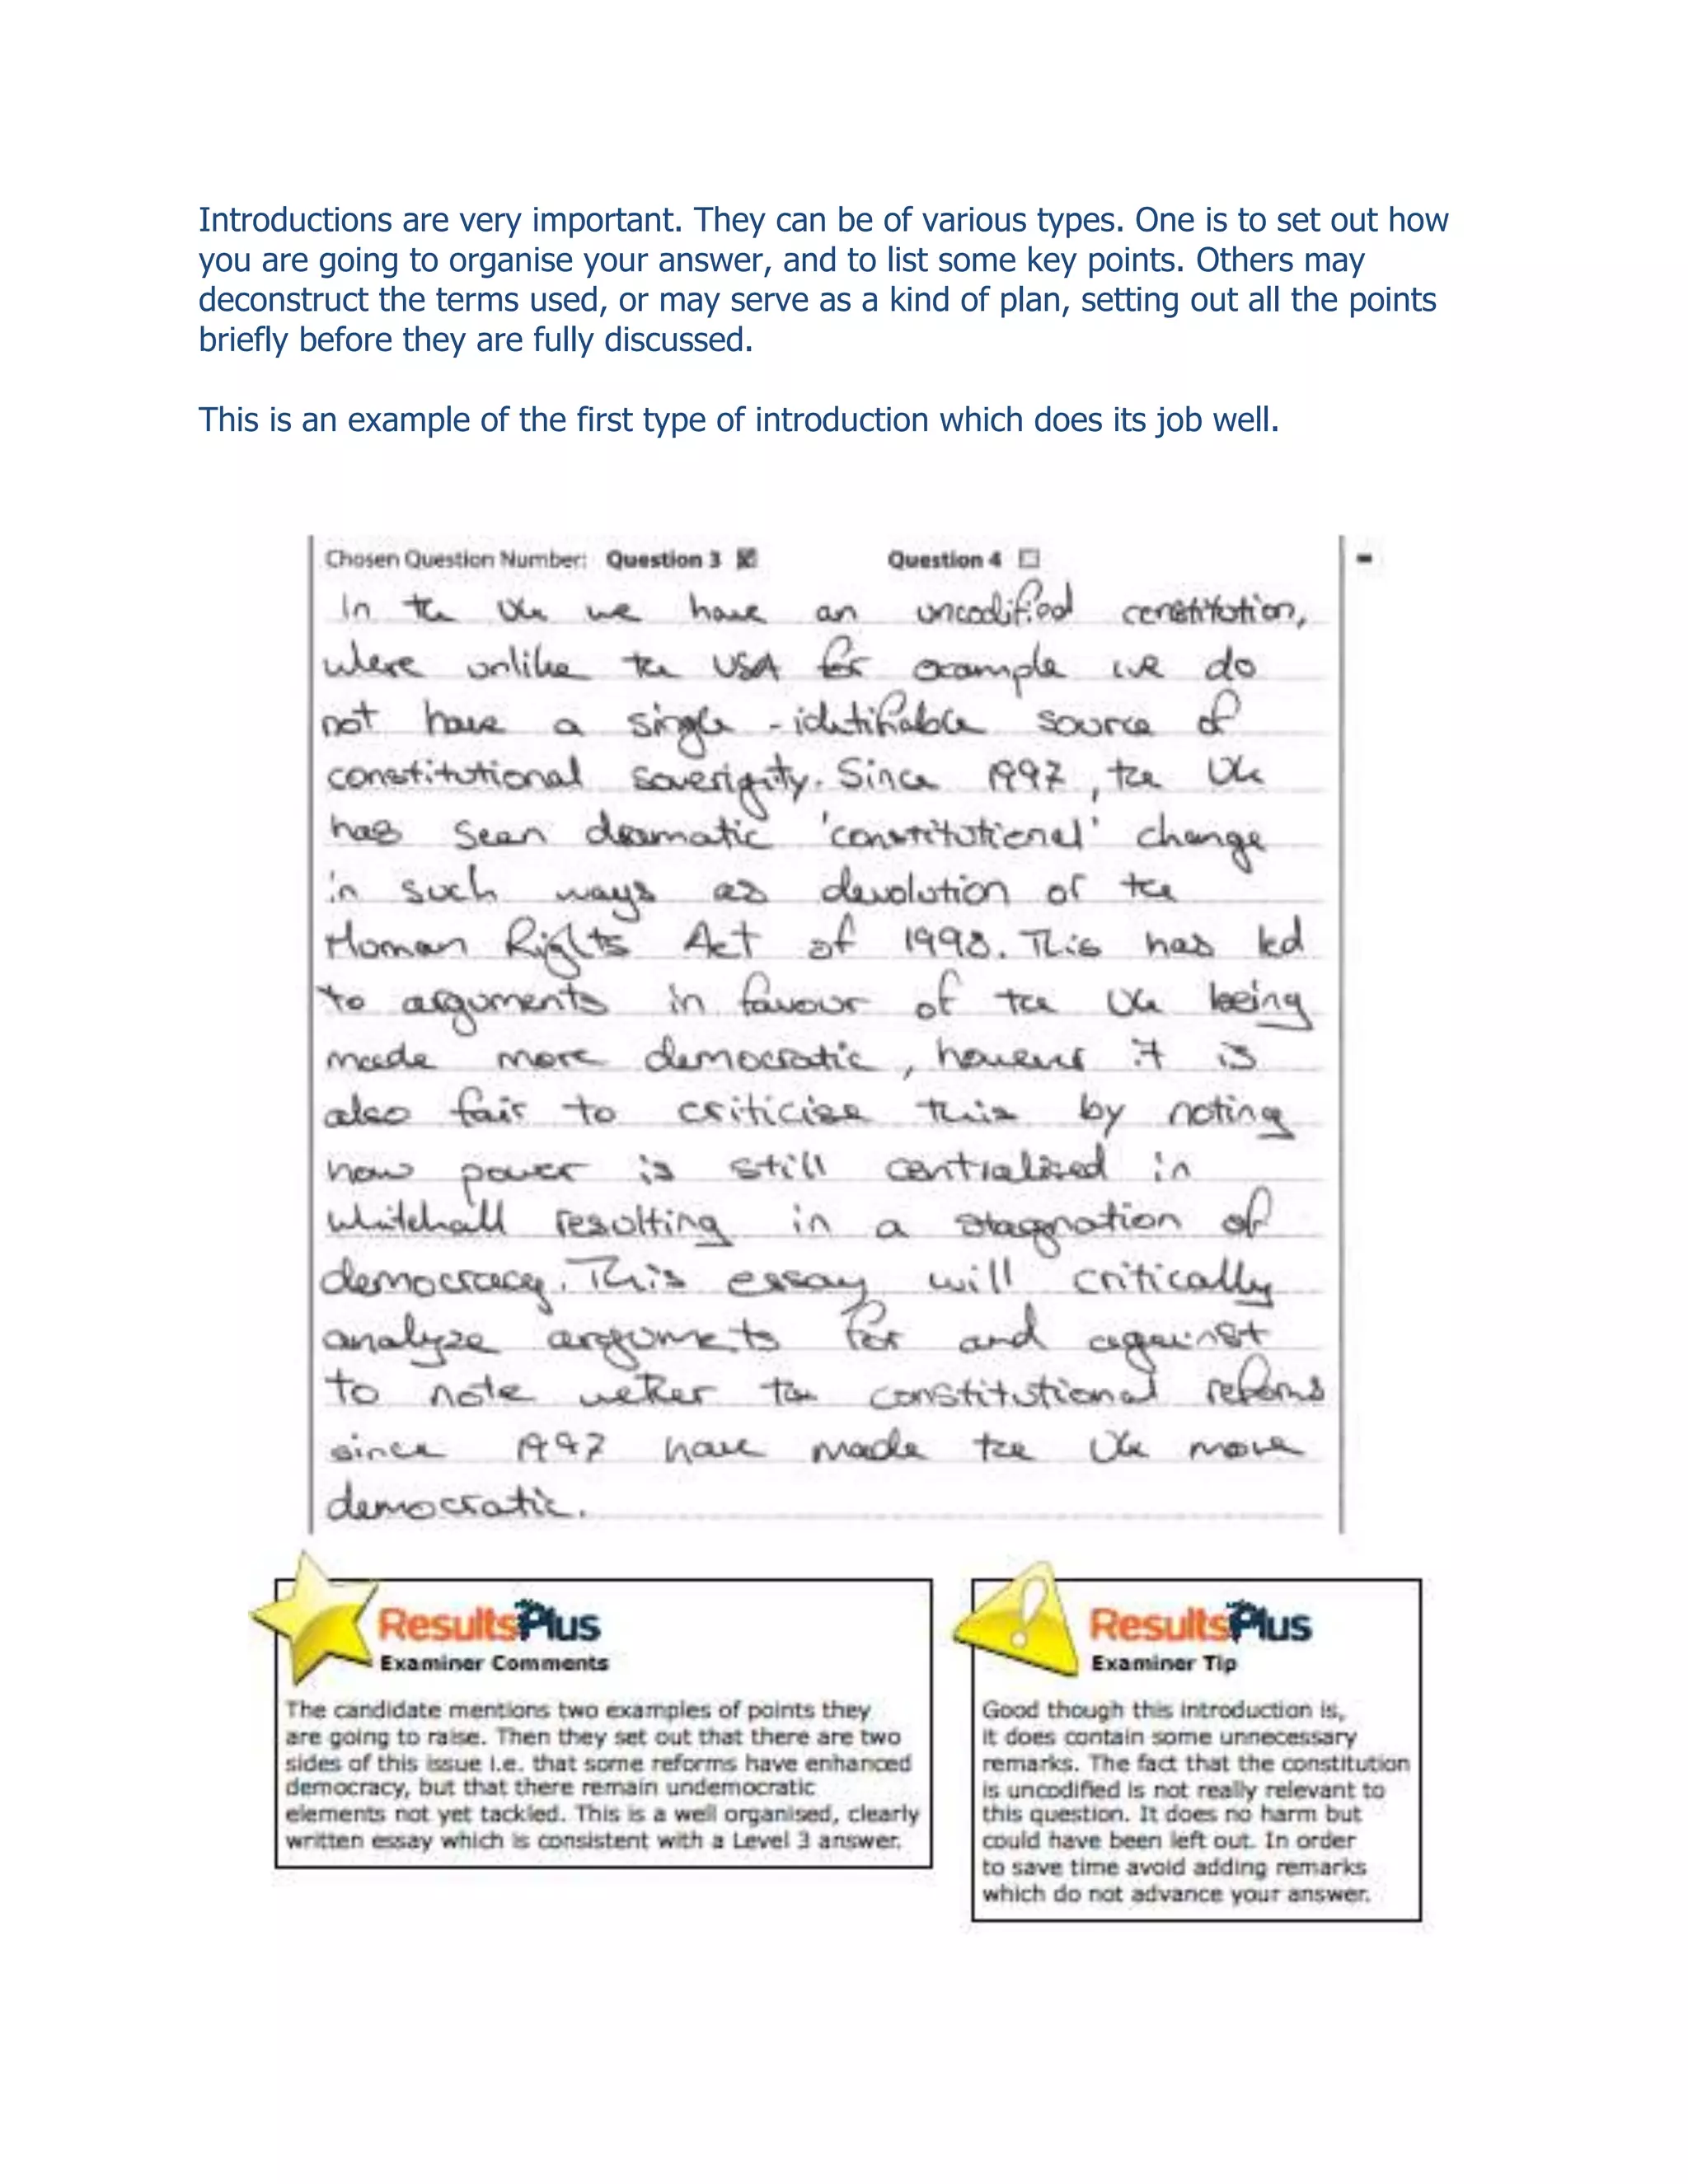 Introductions are very important. They can be of various types. One is to set out how
you are going to organise your answer, and to list some key points. Others may
deconstruct the terms used, or may serve as a kind of plan, setting out all the points
briefly before they are fully discussed.
This is an example of the first type of introduction which does its job well.
Chosen Question Number: Question 3 Question 4
In the UK we have an uncodified constitution,
where unlike the USA for example we do
not have a single - identifiable source of
constitutional soverignty. Since 1997, the UK
has seen dramatic 'constitutional' change
in such ways as devolution or the
Human Rights Act of 1998. This has led
to arguments in favour of the UK being
made more democratic, however it is
also fair to criticise this by noting
how power is still centralised in
Whitehall resulting in a stagnation of
democracy. This essay will critically
analyze arguments for and against
to note wether the constitutional reforms
since 1997 have made the UK more
democratic.
ResultsPlus
Examiner Comments
The candidate mentions two examples of points they
are going to raise. Then they set out that there are two
sides of this issue i.e. that some reforms have enhanced
democracy, but that there remain undemocratic
elements not yet tackled. This is a well organised, clearly
written essay which is consistent with a Level 3 answer.
ResultsPlus
Examiner Tip
Good though this introduction is,
it does contain some unnecessary
remarks. The fact that the constitution
is uncodified is not really relevant to
this question. It does no harm but
could have been left out. In order
to save time avoid adding remarks
which do not advance your answer.